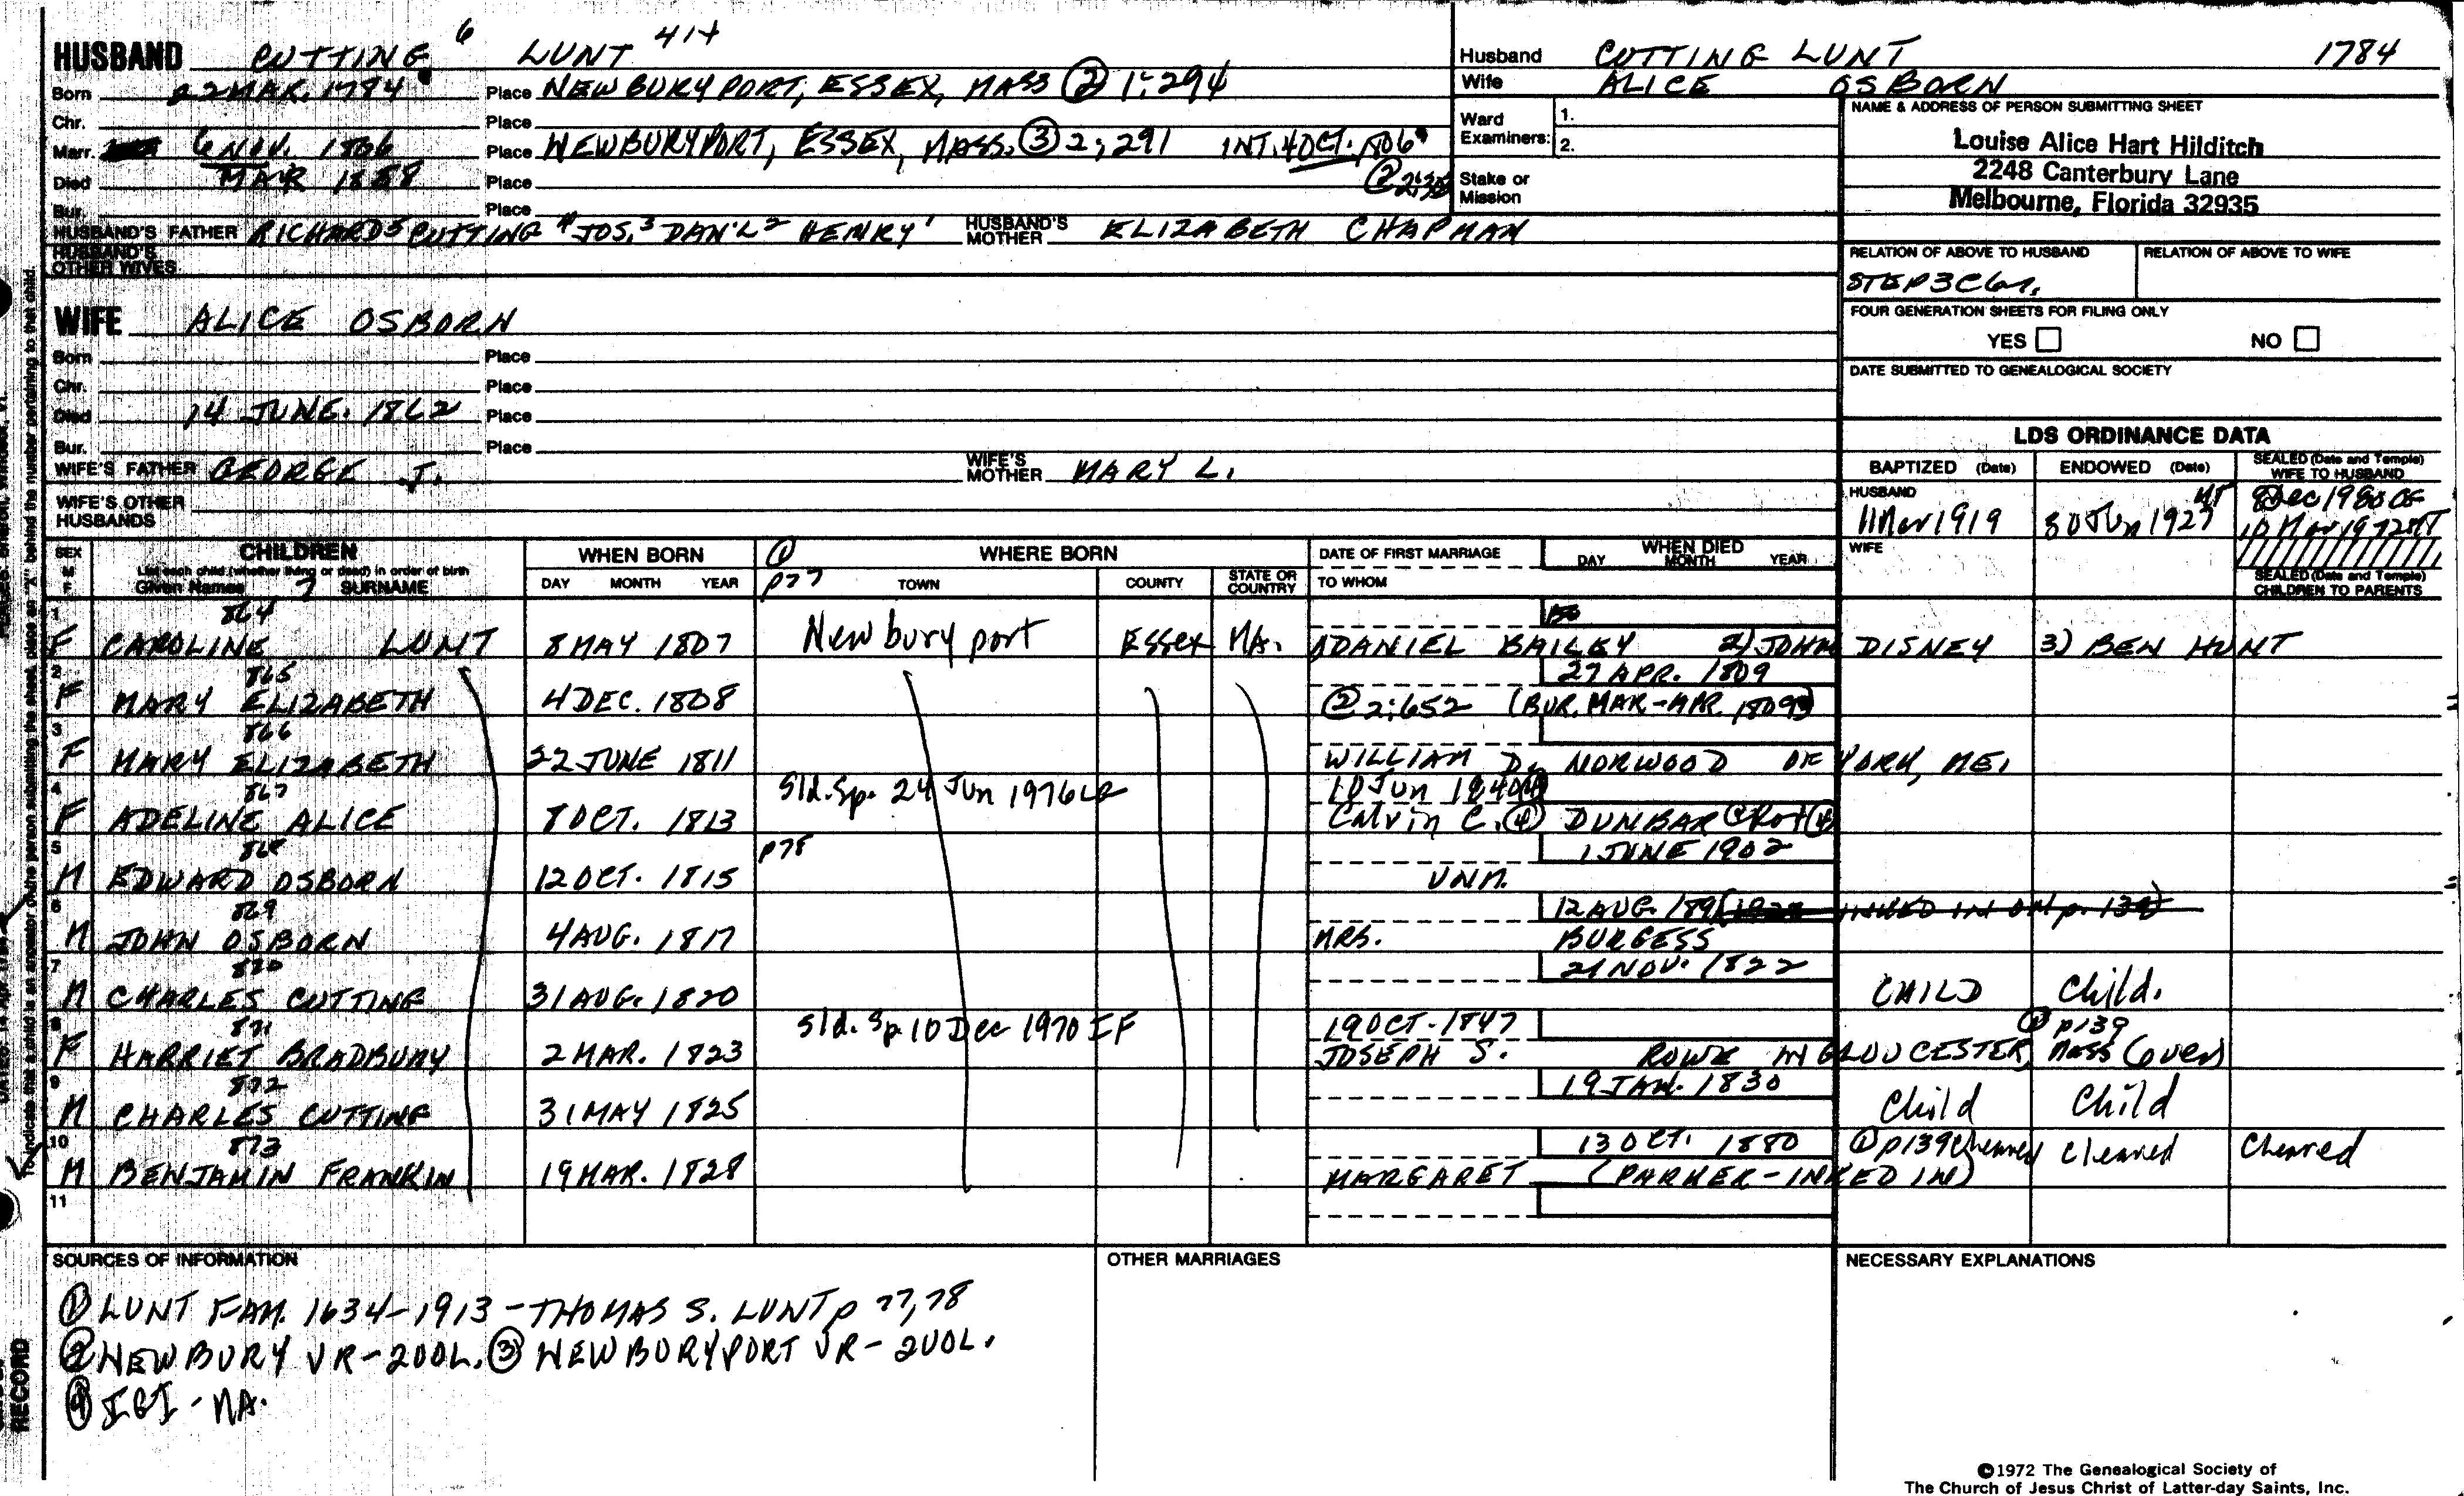 HUSBAND CUTTING 6 LUNT 414
Born 22 MAR. 1784 Place NEWBURYPORT, ESSEX, MASS ② 1:294
Chr. Place
Marr. 6 NOV. 1806 Place NEWBURYPORT, ESSEX, MASS. ③ 2:291 INT. 4 OCT. 1806
Died MAR 1858 Place
Bur. Place
HUSBAND'S FATHER RICHARD 5 CUTTING 4 JOS. 3 DAN'L 2 HENRY 1 HUSBAND'S MOTHER ELIZABETH CHAPMAN
HUSBAND'S OTHER WIVES
WIFE ALICE OSBORN
Born Place
Chr. Place
Died 14 JUNE. 1862 Place
Bur. Place
WIFE'S FATHER GEORGE J. WIFE'S MOTHER MARY L.
WIFE'S OTHER HUSBANDS
Husband CUTTING LUNT 1784
Wife ALICE OSBORN
Ward Examiners: 1.
2.
Stake or Mission
NAME & ADDRESS OF PERSON SUBMITTING SHEET
Louise Alice Hart Hilditch
2248 Canterbury Lane
Melbourne, Florida 32935
RELATION OF ABOVE TO HUSBAND RELATION OF ABOVE TO WIFE
FOUR GENERATION SHEETS FOR FILING ONLY
YES NO
DATE SUBMITTED TO GENEALOGICAL SOCIETY
LDS ORDINANCE DATA
BAPTIZED (Date) ENDOWED (Date) SEALED (Date and Temple) WIFE TO HUSBAND
HUSBAND
11 Mar 1919 30 Jun 1927
WIFE
SEALED (Date and Temple) CHILDREN TO PARENTS
SEX M F CHILDREN WHEN BORN ① WHERE BORN DATE OF FIRST MARRIAGE WHEN DIED
List each child (whether living or dead) in order of birth
Given Names 7 SURNAME DAY MONTH YEAR p77 TOWN COUNTY STATE OR COUNTRY TO WHOM DAY MONTH YEAR
1 864
F CAROLINE LUNT 8 MAY 1807 Newburyport Essex MA. 1) DANIEL BAILEY 2) JOHN DISNEY 3) BEN HUNT
2 865 27 APR. 1809
F MARY ELIZABETH 4 DEC. 1808 ② 2:652 (BUR. MAR-APR. 1809)
3 866
F MARY ELIZABETH 22 JUNE 1811 WILLIAM D. NORWOOD OF YORK, ME.
4 867 Sld. Sp. 24 Jun 1976 10 Jun 1840 ④
F ADELINE ALICE 8 OCT. 1813 Calvin C. ④ DUNBAR
5 868 p78 1 JUNE 1902
M EDWARD OSBORN 12 OCT. 1815 UNM.
6 869 12 AUG. 189 INKED IN ON p. 139)
M JOHN OSBORN 4 AUG. 1817 MRS. BURGESS
7 870 21 NOV. 1822
M CHARLES CUTTING 31 AUG. 1820 CHILD Child.
8 871 Sld. Sp 10 Dec 1970 IF 19 OCT. 1847 ① p139
F HARRIET BRADBURY 2 MAR. 1823 JOSEPH S. ROWE IN GLOUCESTER, Mass (over)
9 872 19 JAN. 1830
M CHARLES CUTTING 31 MAY 1825 Child Child
10 873 13 OCT. 1880 ① p139 Cleared Cleared Cleared
M BENJAMIN FRANKIN 19 MAR. 1828 MARGARET (PARKER-INKED IN)
11
SOURCES OF INFORMATION OTHER MARRIAGES NECESSARY EXPLANATIONS
① LUNT FAM. 1634-1913 - THOMAS S. LUNT p 77,78
② NEWBURY VR - 2VOL. ③ NEWBURYPORT VR - 2VOL.
④ IGI - MA.
RECORD
To indicate that a child is an ancestor of the person submitting the sheet, place an "X" behind the number pertaining to that child.
©1972 The Genealogical Society of
The Church of Jesus Christ of Latter-day Saints, Inc.